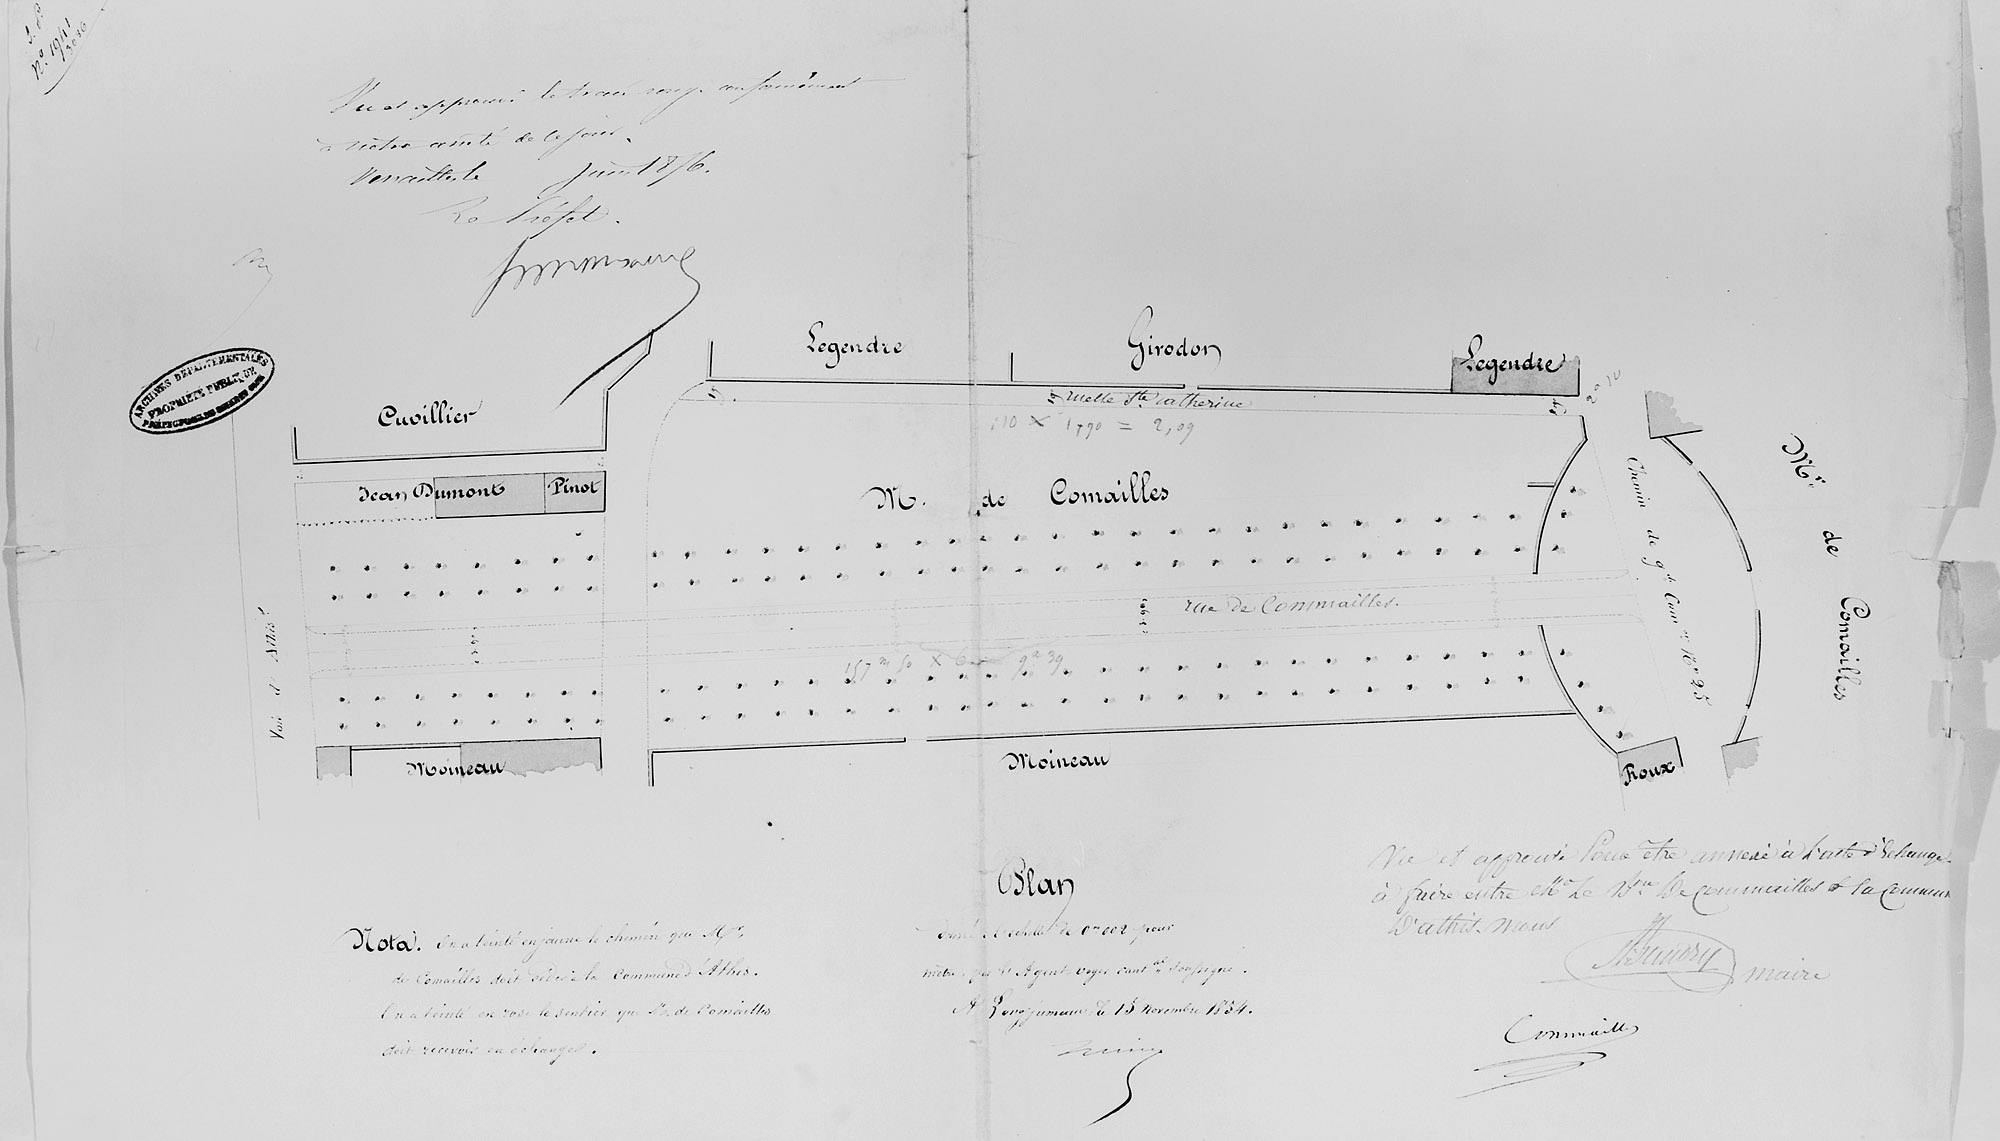 Vu et approuvé le tracé rouge conformément
à notre arrêté de ce jour.
Versailles le Juin 1856.
Le Préfet.
ARCHIVES DÉPARTEMENTALES
PROPRIÉTÉ PUBLIQUE
Cuvillier
Legendre
Girodon
Legendre
ruelle Ste Catherine
110 × 1,90 = 2,09
Jean Dumont
Pinot
M. de Comailles
Mr. de Comailles
Chemin de gde Comon No 25
rue de Commailles.
157m 50 × 6 = 9a 39
Moineau
Moineau
Roux
Plan
dressé à l'échelle de 0m 002 pour
mètre, par l'Agent-voyer cantal soussigné.
A Longjumeau le 15 Novembre 1854.
Nota. On a teinté en jaune le chemin que Mr.
de Comailles doit céder à la Commune d'Athis.
On a teinté en rose le sentier que M. de Comailles
doit recevoir en échange.
Vu et approuvé Pour être annexé à l'acte d'échange
à faire entre Mr Le Bon De Commailles & la Commune
D'athis-mons
maire
Commailles